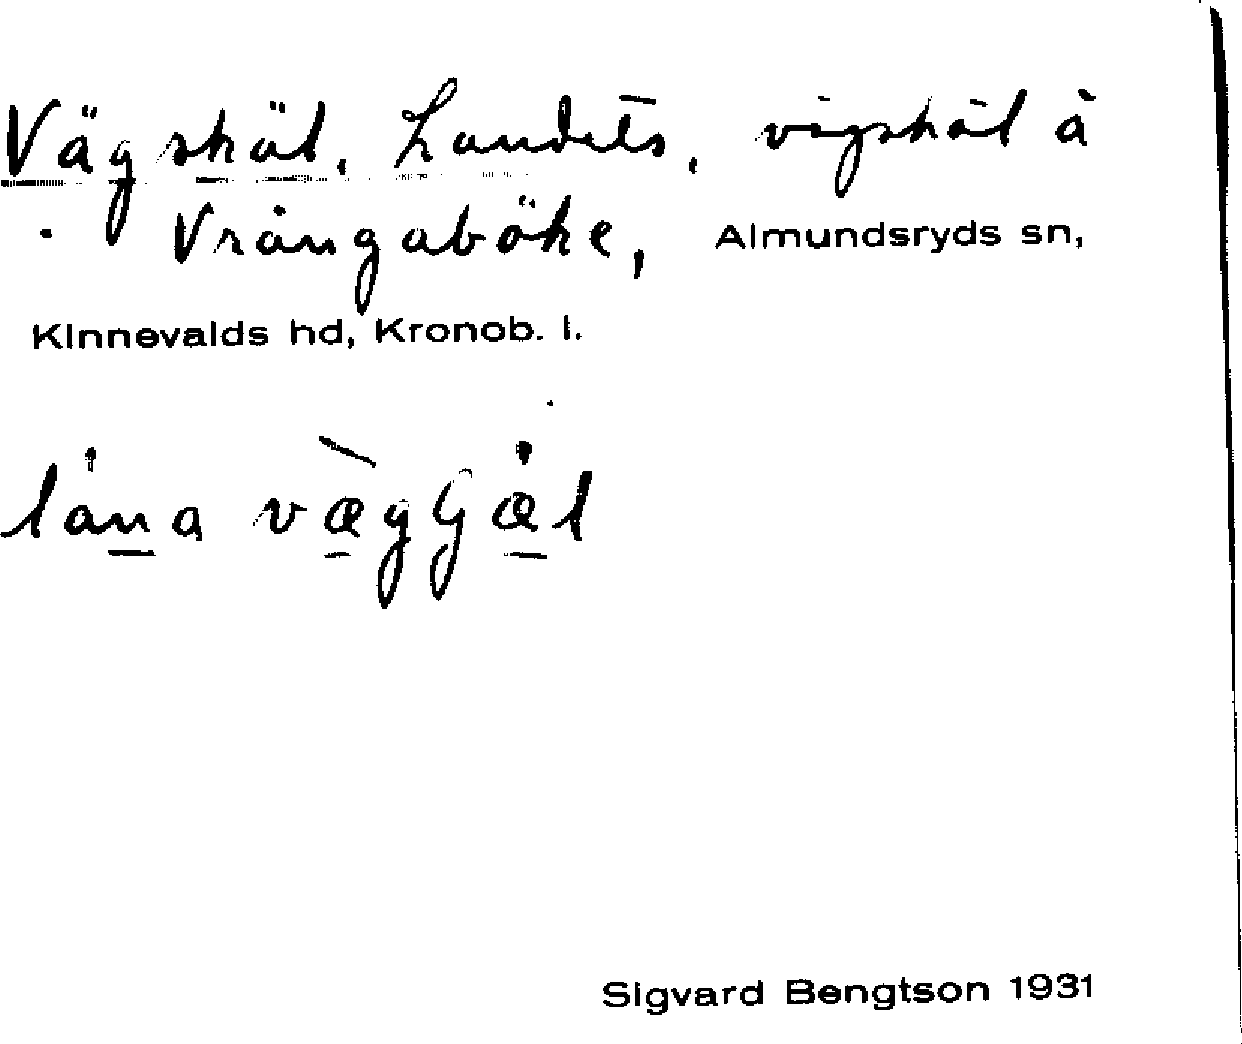 Vägskäl, Landets, vägskäl å
Vrångaböke, Almundsryds sn,
Kinnevalds hd, Kronob. l.
låna vægGæl
Sigvard Bengtson 1931